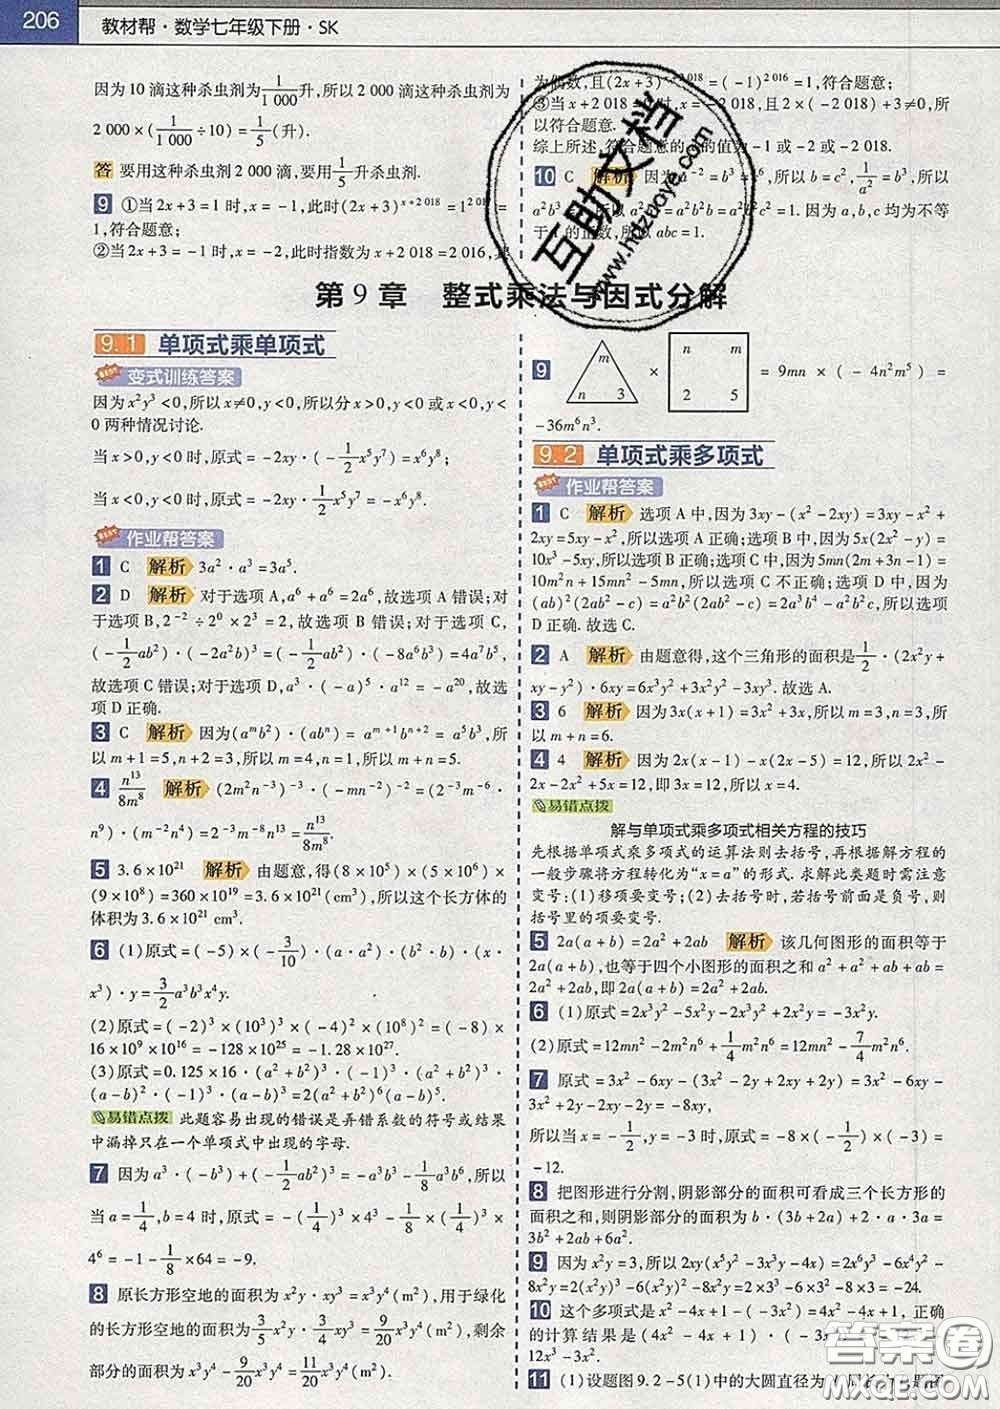 206 教材帮·数学七年级下册·SK
因为10滴这种杀虫剂为1/1 000升,所以2 000滴这种杀虫剂为
2 000×(1/1 000÷10)=1/5(升).
答 要用这种杀虫剂2 000滴,要用1/5升杀虫剂.
9 ①当2x+3=1时,x=-1,此时(2x+3)^(x+2 018)=1^(2 017)=
1,符合题意;
②当2x+3=-1时,x=-2,此时指数为x+2 018=2 016,
为偶数,且(2x+3)^(x+2 018)=(-1)^(2 016)=1,符合题意;
③当x+2 018=0时,x=-2 018,且2×(-2 018)+3≠0,所
以符合题意.
综上所述,符合题意的 的值为-1或-2或-2 018.
10 C 解析 因为a^(-2)=b^3= ,所以b=c^2,1/a^2=b^3,所以
a^2b^3 以 =a^2b^2b=a^2b^2c^2=1.因为a,b,c均为不等
于1的正数,所以abc=1.
互助文档
www.hdzuoye.com
第9章 整式乘法与因式分解
9.1 单项式乘单项式
变式训练答案
因为x^2y^3<0,所以x≠0,y<0,所以分x>0,y<0或x<0,y<
0两种情况讨论.
当x>0,y<0时,原式=-2xy·(-1/2x^5y^7)=x^6y^8;
当x<0,y<0时,原式=-2xy·1/2x^5y^7=-x^6y^8.
作业帮答案
1 C 解析 3a^2·a^3=3a^5.
2 D 解析 对于选项A,a^6+a^6=2a^6,故选项A错误;对
于选项B,2^(-2)÷2^0×2^3=2,故选项B错误;对于选项C,
(-1/2ab^2)·(-2a^2b)^3=(-1/2ab^2)·(-8a^6b^3)=4a^7b^5,
故选项C错误;对于选项D,a^3·(-a)^5·a^12=-a^20,故选
项D正确.
3 C 解析 因为(a^mb^2)·(ab^n)=a^(m+1)b^(n+2)=a^5b^3,所
以m+1=5,n+2=3,所以m=4,n=1,所以m+n=5.
4 n^13/8m^8 解析 (2m^2n^(-3))^(-3)·(-mn^(-2))^(-2)=(2^(-3)m^(-6)·
n^9)·(m^(-2)n^4)=2^(-3)m^(-8)n^13=n^13/8m^8.
5 3.6×10^21 解析 由题意,得(8×10^5)×(5×10^6)×
(9×10^8)=360×10^19=3.6×10^21(cm^3),所以这个长方体的
体积为3.6×10^21 cm^3.
6 (1)原式=(-5)×(-3/10)·(a·a^2)·(b^2·b)·(x·
x^3)·y=3/2a^3b^3x^4y.
(2)原式=(-2)^3×(10^3)^3×(-4)^2×(10^8)^2=(-8)×
16×10^9×10^16=-128×10^25=-1.28×10^27.
(3)原式=0.125×16·(a^2+b^2)^3·(a^2+b^2)^3·
(a-b)^2·(a-b)^3=2(a^2+b^2)^6(a-b)^5.
易错点拨 此题容易出现的错误是弄错系数的符号或结果
中漏掉只在一个单项式中出现的字母.
7 因为a^3·(-b)^3+(-1/2ab^2)^3=-a^3b^3-1/8a^3b^6,所以
当a=1/4,b=4时,原式=-(1/4)^3×4^3-1/8×(1/4)^3×
4^6=-1-1/8×64=-9.
8 原长方形空地的面积为x^2y·xy^3=x^3y^4(m^2),用于绿化
的长方形空地的面积为3/5x^2y·3/4xy^3=9/20x^3y^4(m^2),剩余
部分的面积为x^3y^4-9/20x^3y^4=11/20x^3y^4(m^2).
9 m n 3 × n m 2 5 =9mn×(-4n^2m^5)=
-36m^6n^3.
9.2 单项式乘多项式
作业帮答案
1 C 解析 选项A中,因为3xy-(x^2-2xy)=3xy-x^2+
2xy=5xy-x^2,所以选项A正确;选项B中,因为5x(2x^2-y)=
10x^3-5xy,所以选项B正确;选项C中,因为5mn(2m+3n-1)=
10m^2n+15mn^2-5mn,所以选项C不正确;选项D中,因为
(ab)^2(2ab^2-c)=a^2b^2(2ab^2-c)=2a^3b^4-a^2b^2c,所以选项
D正确.故选C.
2 A 解析 由题意得,这个三角形的面积是1/2·(2x^2y+
xy-y^2)·6xy=6x^3y^2+3x^2y^2-3xy^3.故选A.
3 6 解析 因为3x(x+1)=3x^2+3x,所以m=3,n=3,所
以m+n=6.
4 4 解析 因为2x(x-1)-x(2x-5)=12,所以2x^2-
2x-2x^2+5x=12,即3x=12,所以x=4.
易错点拨
解与单项式乘多项式相关方程的技巧
先根据单项式乘多项式的运算法则去括号,再根据解方程的
一般步骤将方程转化为“x=a”的形式.求解此类题时需注意
变号:(1)移项要变号;(2)去括号时,若括号前面是负号,则
括号里的项要变号.
5 2a(a+b)=2a^2+2ab 解析 该几何图形的面积等于
2a(a+b),也等于四个小图形的面积之和a^2+a^2+ab+ab=
2a^2+2ab,即2a(a+b)=2a^2+2ab.
6 (1)原式=2x^2y^2-5x^2y-2x^3y^2+2x^2y=-3x^2y.
(2)原式=12mn^2-2m^2n^6+1/4m^2n^6=12mn^2-7/4m^2n^6.
7 原式=3x^2-6xy-(3x^2-2y+2xy+2y)=3x^2-6xy-
3x^2+2y-2xy-2y=-8xy,
所以当x=-1/2,y=-3时,原式=-8×(-1/2)×(-3)=
-12.
8 把图形进行分割,阴影部分的面积可看成三个长方形的
面积之和,则阴影部分的面积为b·(3b+2a)+2·a·3a=
3b^2+2ab+6a^2.
9 因为x^2y=3,所以2xy(x^5y^2-3x^3y-4x)=2x^6y^3-6x^4y^2-
8x^2y=2(x^2y)^3-6(x^2y)^2-8x^2y=2×3^3-6×3^2-8×3=-24.
10 这个多项式是x^2-4x+1-(-3x^2)=4x^2-4x+1,正确
的计算结果是(4x^2-4x+1)·(-3x^2)=-12x^4+
12x^3-3x^2.
11 (1)设题图9.2-5(1)中的大圆直径为
答案圈
MXQE.COM